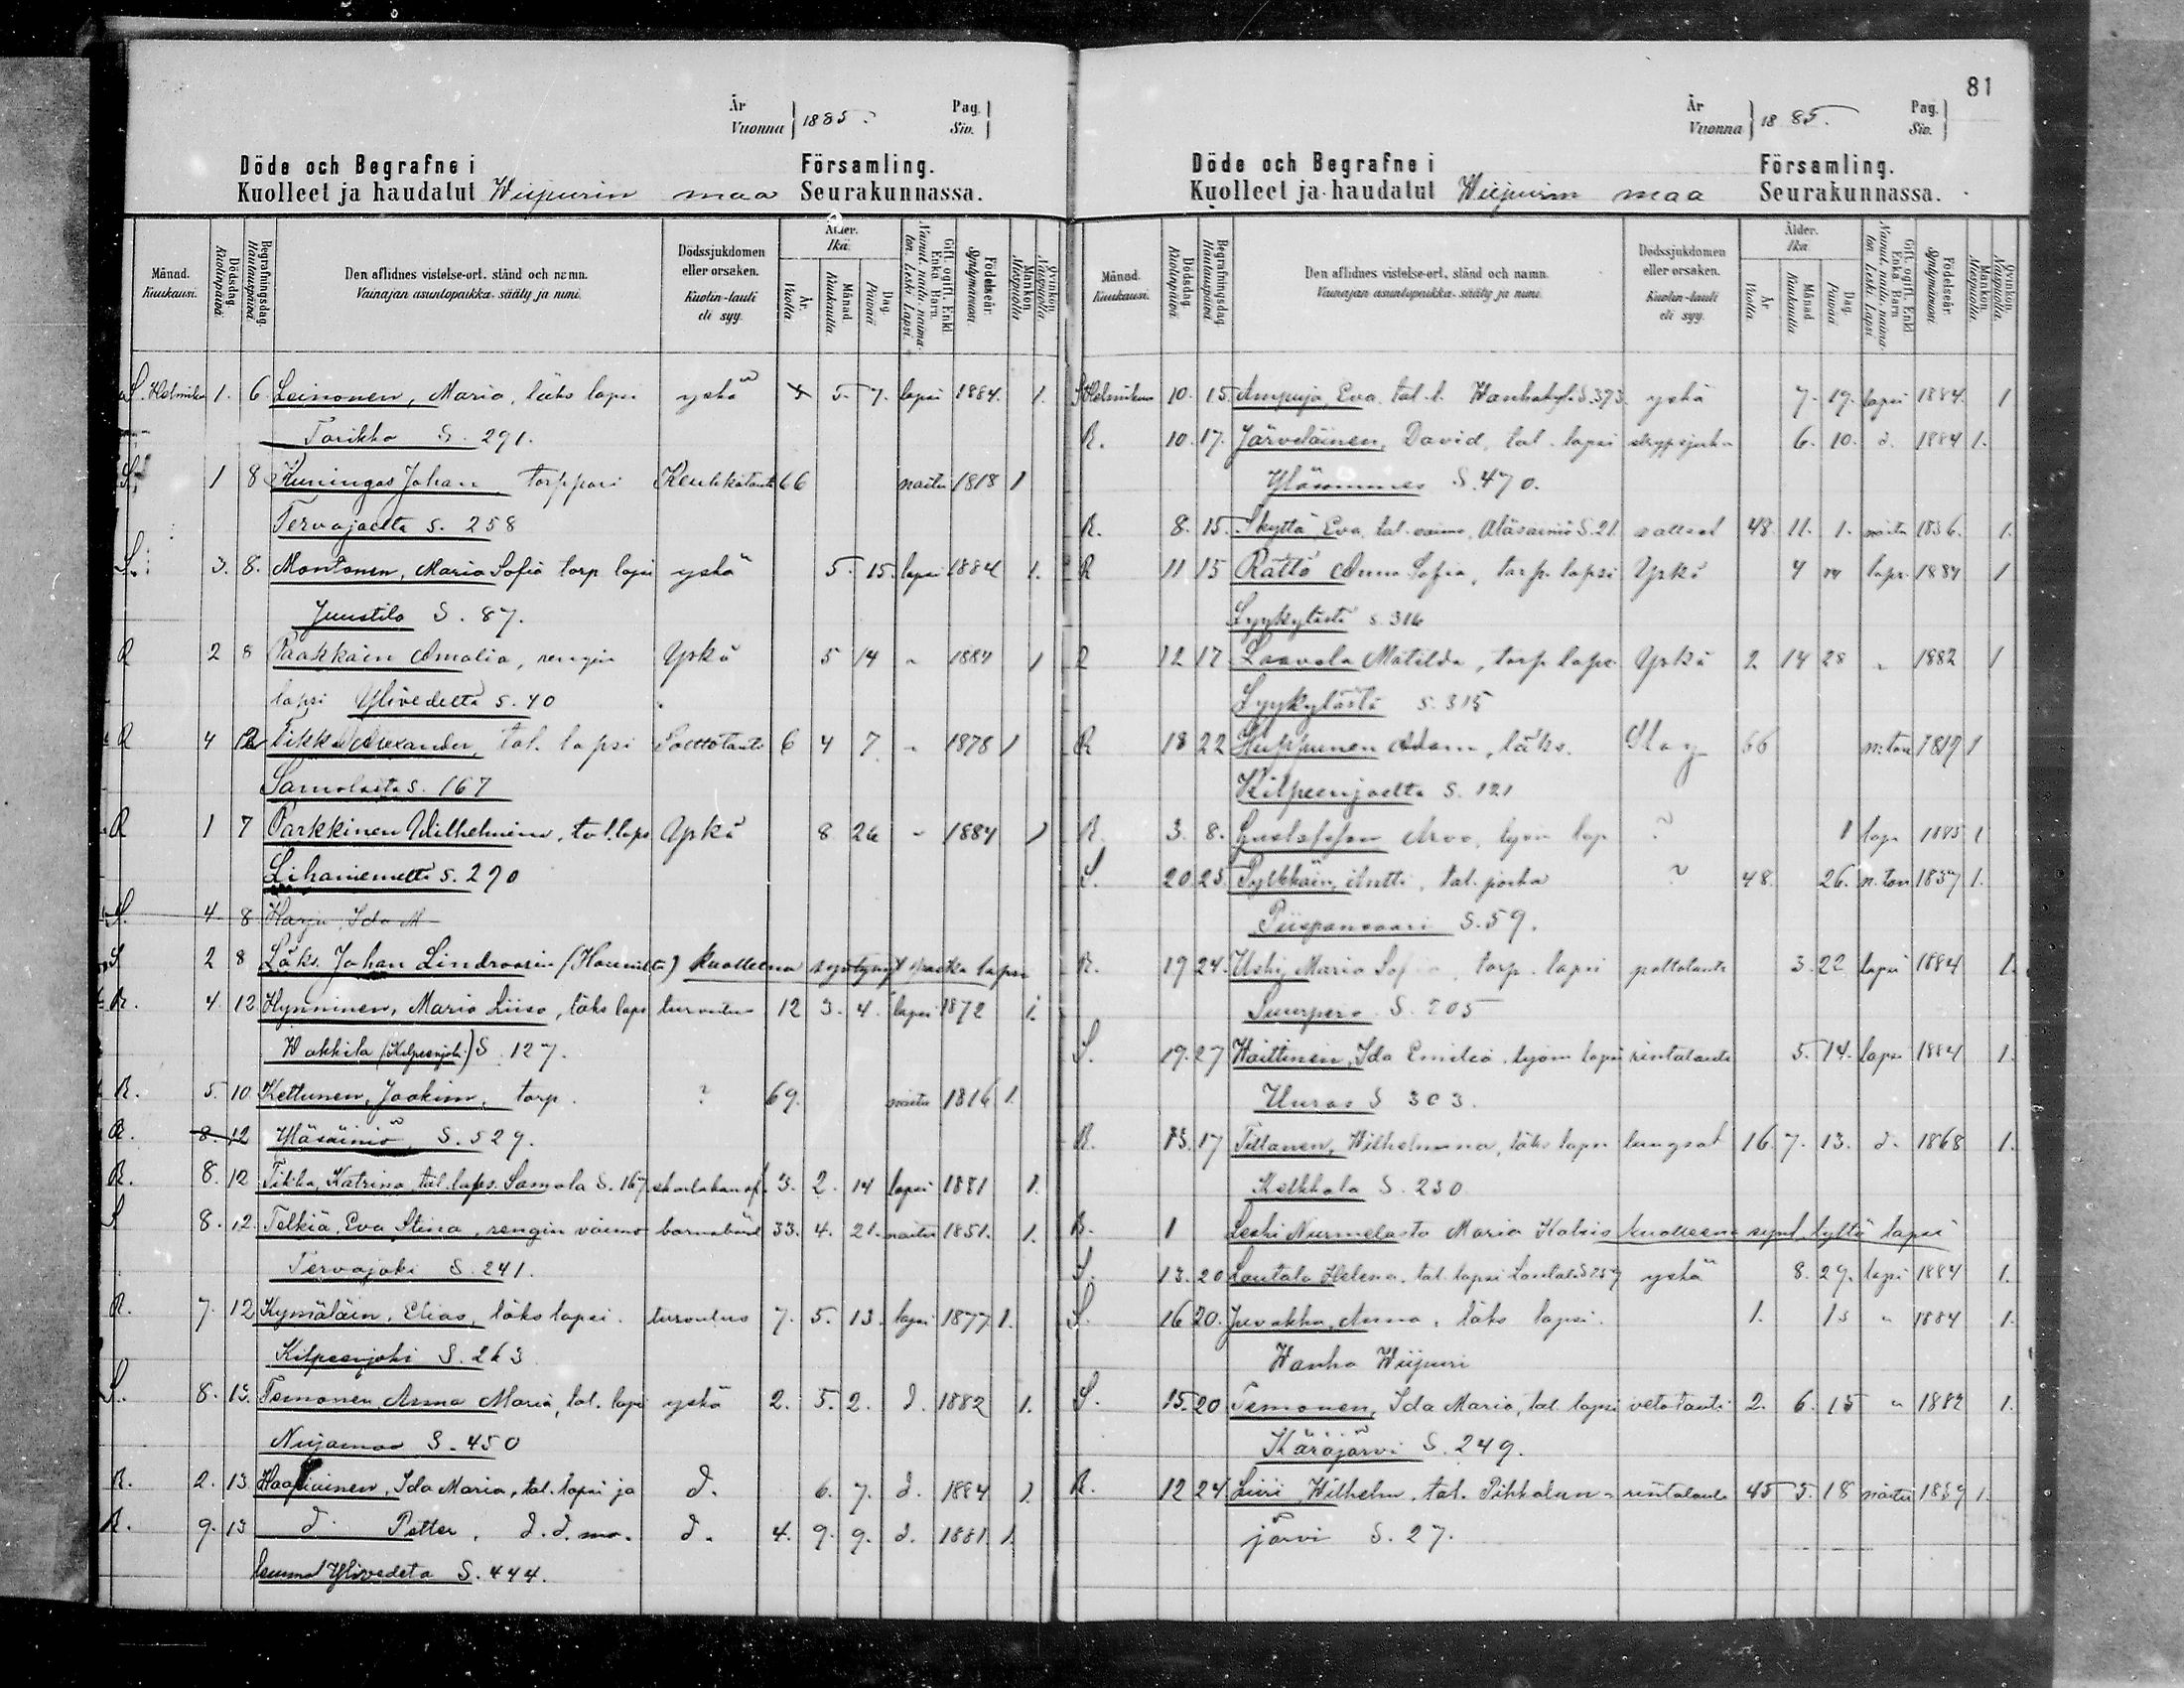 År Vuonna 1885. Pag. Siv.
Döde och Begrafne i Församling.
Kuolleet ja haudatut Wiipurin maa Seurakunnassa.
Månad. Kuukausi. Dödsdag. Kuolinpäivä. Begrafningsdag. Hautauspäivä. Den aflidnes vistelse-ort, stånd och namn. Vainajan asuntopaikka, sääty ja nimi. Dödssjukdomen eller orsaken. Kuolin-tauti eli syy. Ålder. Ikä. År. Vuotta. Månad. Kuukautta. Dag. Päivää. Gift, ogift, Enkl. Enka. Barn. Nainut, naitu, naimaton. Leski. Lapsi. Födelseår. Syntymävuosi. Mankön. Miespuolia. Qvinkön. Naispuolia.
S. Helmiku 1. 6. Leinonen, Maria, läks lapsi yskä 5. 7. lapsi 1884. 1.
Tarikka S. 291.
S. 1 8 Kuningas Johan, torppari Keuhkotauti 66 naitu 1818 1
Tervajoelta S. 258
S. 3. 8. Montonen, Maria Sofia torp lapsi yskä 5. 15. lapsi 1884 1.
Juustila S. 87.
R 2 8 Paakkäin Amalia, rengin Yskä 5 14 " 1884 1
lapsi Ylivedeltä S. 40
R 4 12 Tikka Alexander, tal. lapsi 6 4 7 " 1878 1
Samolasta S. 167
R 1 7 Parkkinen Wilhelmina, tal. laps Yskä 8 26 " 1884 1
Lihaniemeltä S. 290
S. 4 8 Harju, Ida M
S 2 8 Läks. Johan Lindroosin kuolleena syntynyt lapsi
R. 4. 12 Hynninen, Maria Liisa, läks laps turvotus 12 3. 4. lapsi 1872 1.
Wakkila (Kilpeenjoki) S. 127.
R. 5. 10. Kettunen, Joakim, torp. ? 69. naitu 1816 1.
R. 8. 12 Yläsäiniö, S. 529.
R. 8. 12 Tikka, Katrina, tal. laps. Samola S. 167 3. 2. 14 lapsi 1881 1.
S 8. 12. Telkiä, Eva Stina, rengin vaimo barnsbörd 33. 4. 21. naitu 1851. 1.
Tervajoki S. 241.
R. 7. 12 Kymäläin, Elias, läks lapsi. turvotus 7. 5. 13. lapsi 1877 1.
Kilpeenjoki S. 263
S. 8. 13. Temonen Anna Maria, tal. lapsi yskä 2. 5. 2. d. 1882 1.
Nuijamaa S. 450
R. 2. 13. Haapiainen, Ida Maria, tal. lapsi ja d. 6. 7. d. 1884 1.
R. 9. 13 d. Petter, d. d. d. 4. 9. 9. d. 1881 1.
Ylivedeta S. 444.
81
År Vuonna 1885. Pag. Siv.
Döde och Begrafne i Församling.
Kuolleet ja haudatut Wiipurin maa Seurakunnassa.
Månad. Kuukausi. Dödsdag. Kuolinpäivä. Begrafningsdag. Hautauspäivä. Den aflidnes vistelse-ort, stånd och namn. Vainajan asuntopaikka, sääty ja nimi. Dödssjukdomen eller orsaken. Kuolin-tauti eli syy. Ålder. Ikä. År. Vuotta. Månad. Kuukautta. Dag. Päivää. Gift, ogift, Enkl. Enka. Barn. Nainut, naitu, naimaton. Leski. Lapsi. Födelseår. Syntymävuosi. Mankön. Miespuolia. Qvinkön. Naispuolia.
S Helmikuu 10. 15. Ampuja, Eva, tal. l. Wanhakylä S. 373. yskä 7. 19. lapsi 1884. 1
R. 10. 17. Järveläinen, David, tal. lapsi 6. 10. d. 1884 1.
Yläsommee S. 470.
R. 8. 15. Skyttä, Eva, tal. vaimo, Alasainiö S. 21. 48. 11. 1. naitu 1836. 1.
R 11 15 Rättö Anna Sofia, torp. lapsi Yskä 4 lapsi 1884 1
Lyykylästä S. 316
R 12 17 Laavola Matilda, torp. laps Yskä 2 14 28 " 1882 1
Lyykylästä S. 315
R 18 22 Huppunen Adam, läks. Slag 66 n:ton 1819 1
Kilpeenjoelta S. 121
R. 3. 8. Gustafsson Arvo, työm lap ? 1 laps 1885 1
S. 20. 25. Pylkkäin, Antti, tal. poika ? 48. 26. n. ton 1837 1.
Piispansaari S. 59.
R. 19 24. Uski, Maria Sofia, torp. lapsi polttotauti 3. 22 lapsi 1884 1.
Suurpero S. 205
S. 19. 27 Waittinen, Ida Emilia, työm lapsi rintatauti 5. 14. lapsi 1884 1.
Uuras S 303.
R. 13. 17 Tiltanen, Wilhelmina, läks lapsi lungsot 16. 7. 13. d. 1868 1.
Kelkkala S. 230
R. 1 Leski Nurmelasta Maria kuolleena synt. tyttö lapsi
S. 13. 20 Lautala Helena, tal. lapsi yskä 8. 29. lapsi 1884 1.
S. 16 20. Juvakka, Anna, läks lapsi. 1. 15 " 1884 1.
Wanha Wiipuri
S. 15. 20 Temonen, Ida Maria, tal. lapsi vetotauti 2. 6. 15 " 1882 1.
Käräjärvi S. 249.
R. 12 24 Liiri Wilhelm, tal. Pihkalan- rintatauti 45 5. 18 naitu 1839 1.
järvi S. 27.